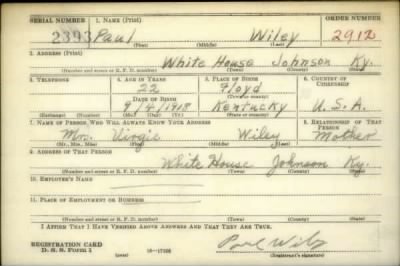 SERIAL NUMBER 1. NAME (Print) ORDER NUMBER
2393 Paul Wiley 2912
(First) (Middle) (Last)
2. ADDRESS (Print)
White House Johnson Ky.
(Number and street or R. F. D. number) (Town) (County) (State)
3. TELEPHONE 4. AGE IN YEARS 5. PLACE OF BIRTH 6. COUNTRY OF CITIZENSHIP
22 Floyd
DATE OF BIRTH (Town or county)
9/4/1918 Kentucky U.S.A.
(Exchange) (Number) (Mo.) (Day) (Yr.) (State or country)
7. NAME OF PERSON WHO WILL ALWAYS KNOW YOUR ADDRESS 8. RELATIONSHIP OF THAT PERSON
Mrs. Virgie Wiley Mother
(Mr., Mrs., Miss) (First) (Middle) (Last)
9. ADDRESS OF THAT PERSON
White House Johnson Ky.
(Number and street or R. F. D. number) (Town) (County) (State)
10. EMPLOYER'S NAME
11. PLACE OF EMPLOYMENT OR BUSINESS
(Number and street or R. F. D. number) (Town) (County) (State)
I AFFIRM THAT I HAVE VERIFIED ABOVE ANSWERS AND THAT THEY ARE TRUE.
REGISTRATION CARD
D. S. S. Form 1 (over) Paul Wiley
(Registrant's signature)